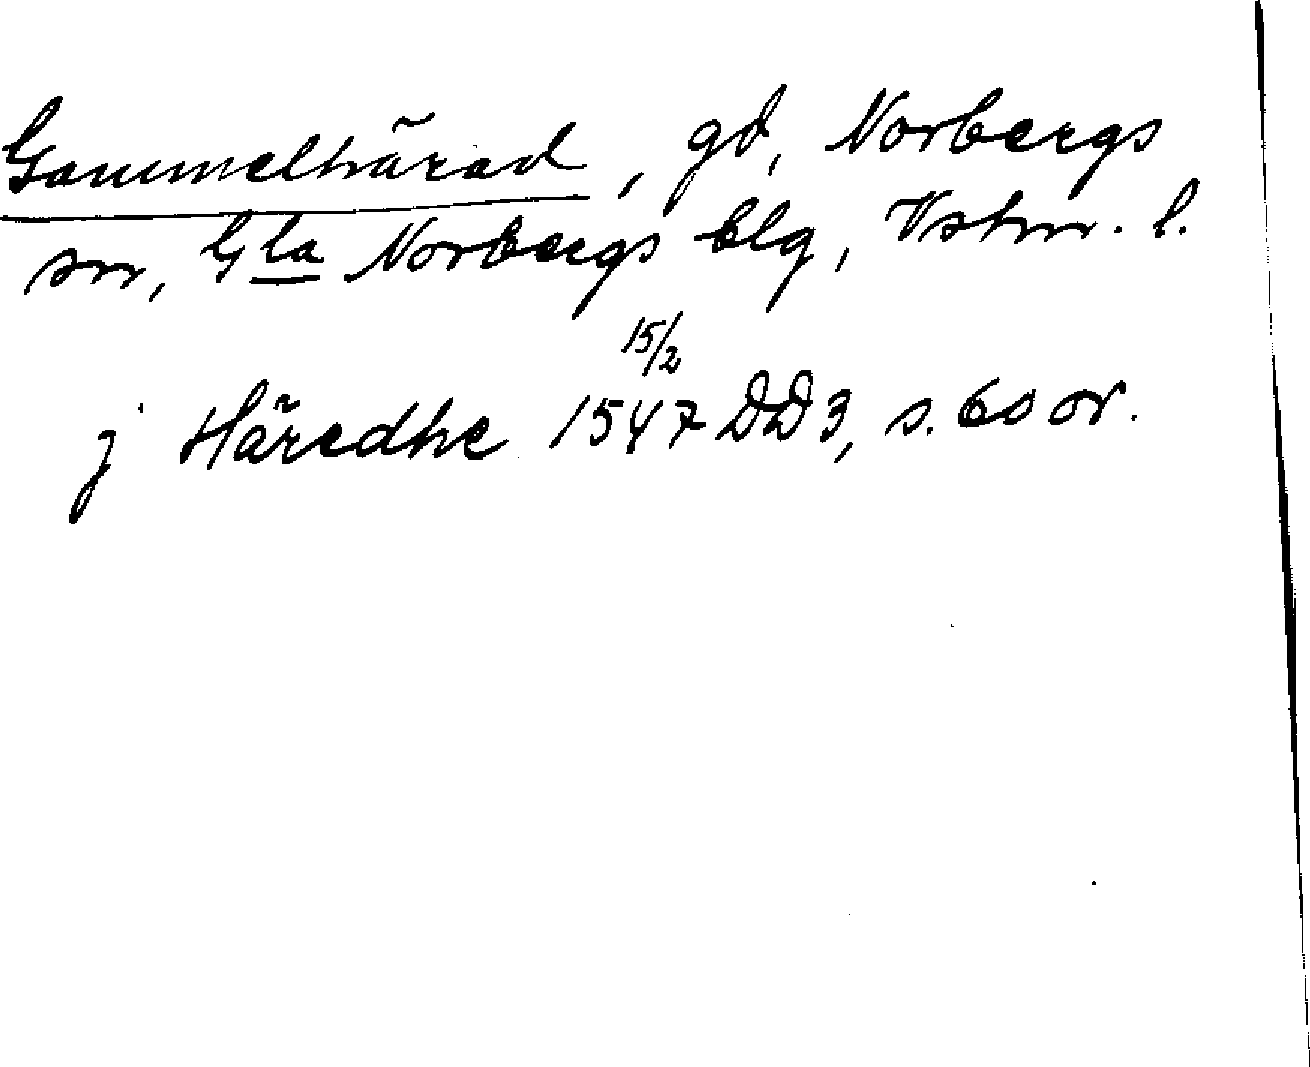 Gammelhärad, gd, Norbergs
sn, Gla Norbergs blg, Vstm. l.
j Häredhe 1547 15/2 DD 3, s. 60 or.